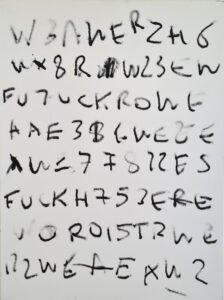 W3AWERZH6
WX8R1W23EW
FU7UCKROWE
AAE3BGWEZE
AWS77822ES
FUCKH753ERE
VOROIST2WE
122WEAEXW2